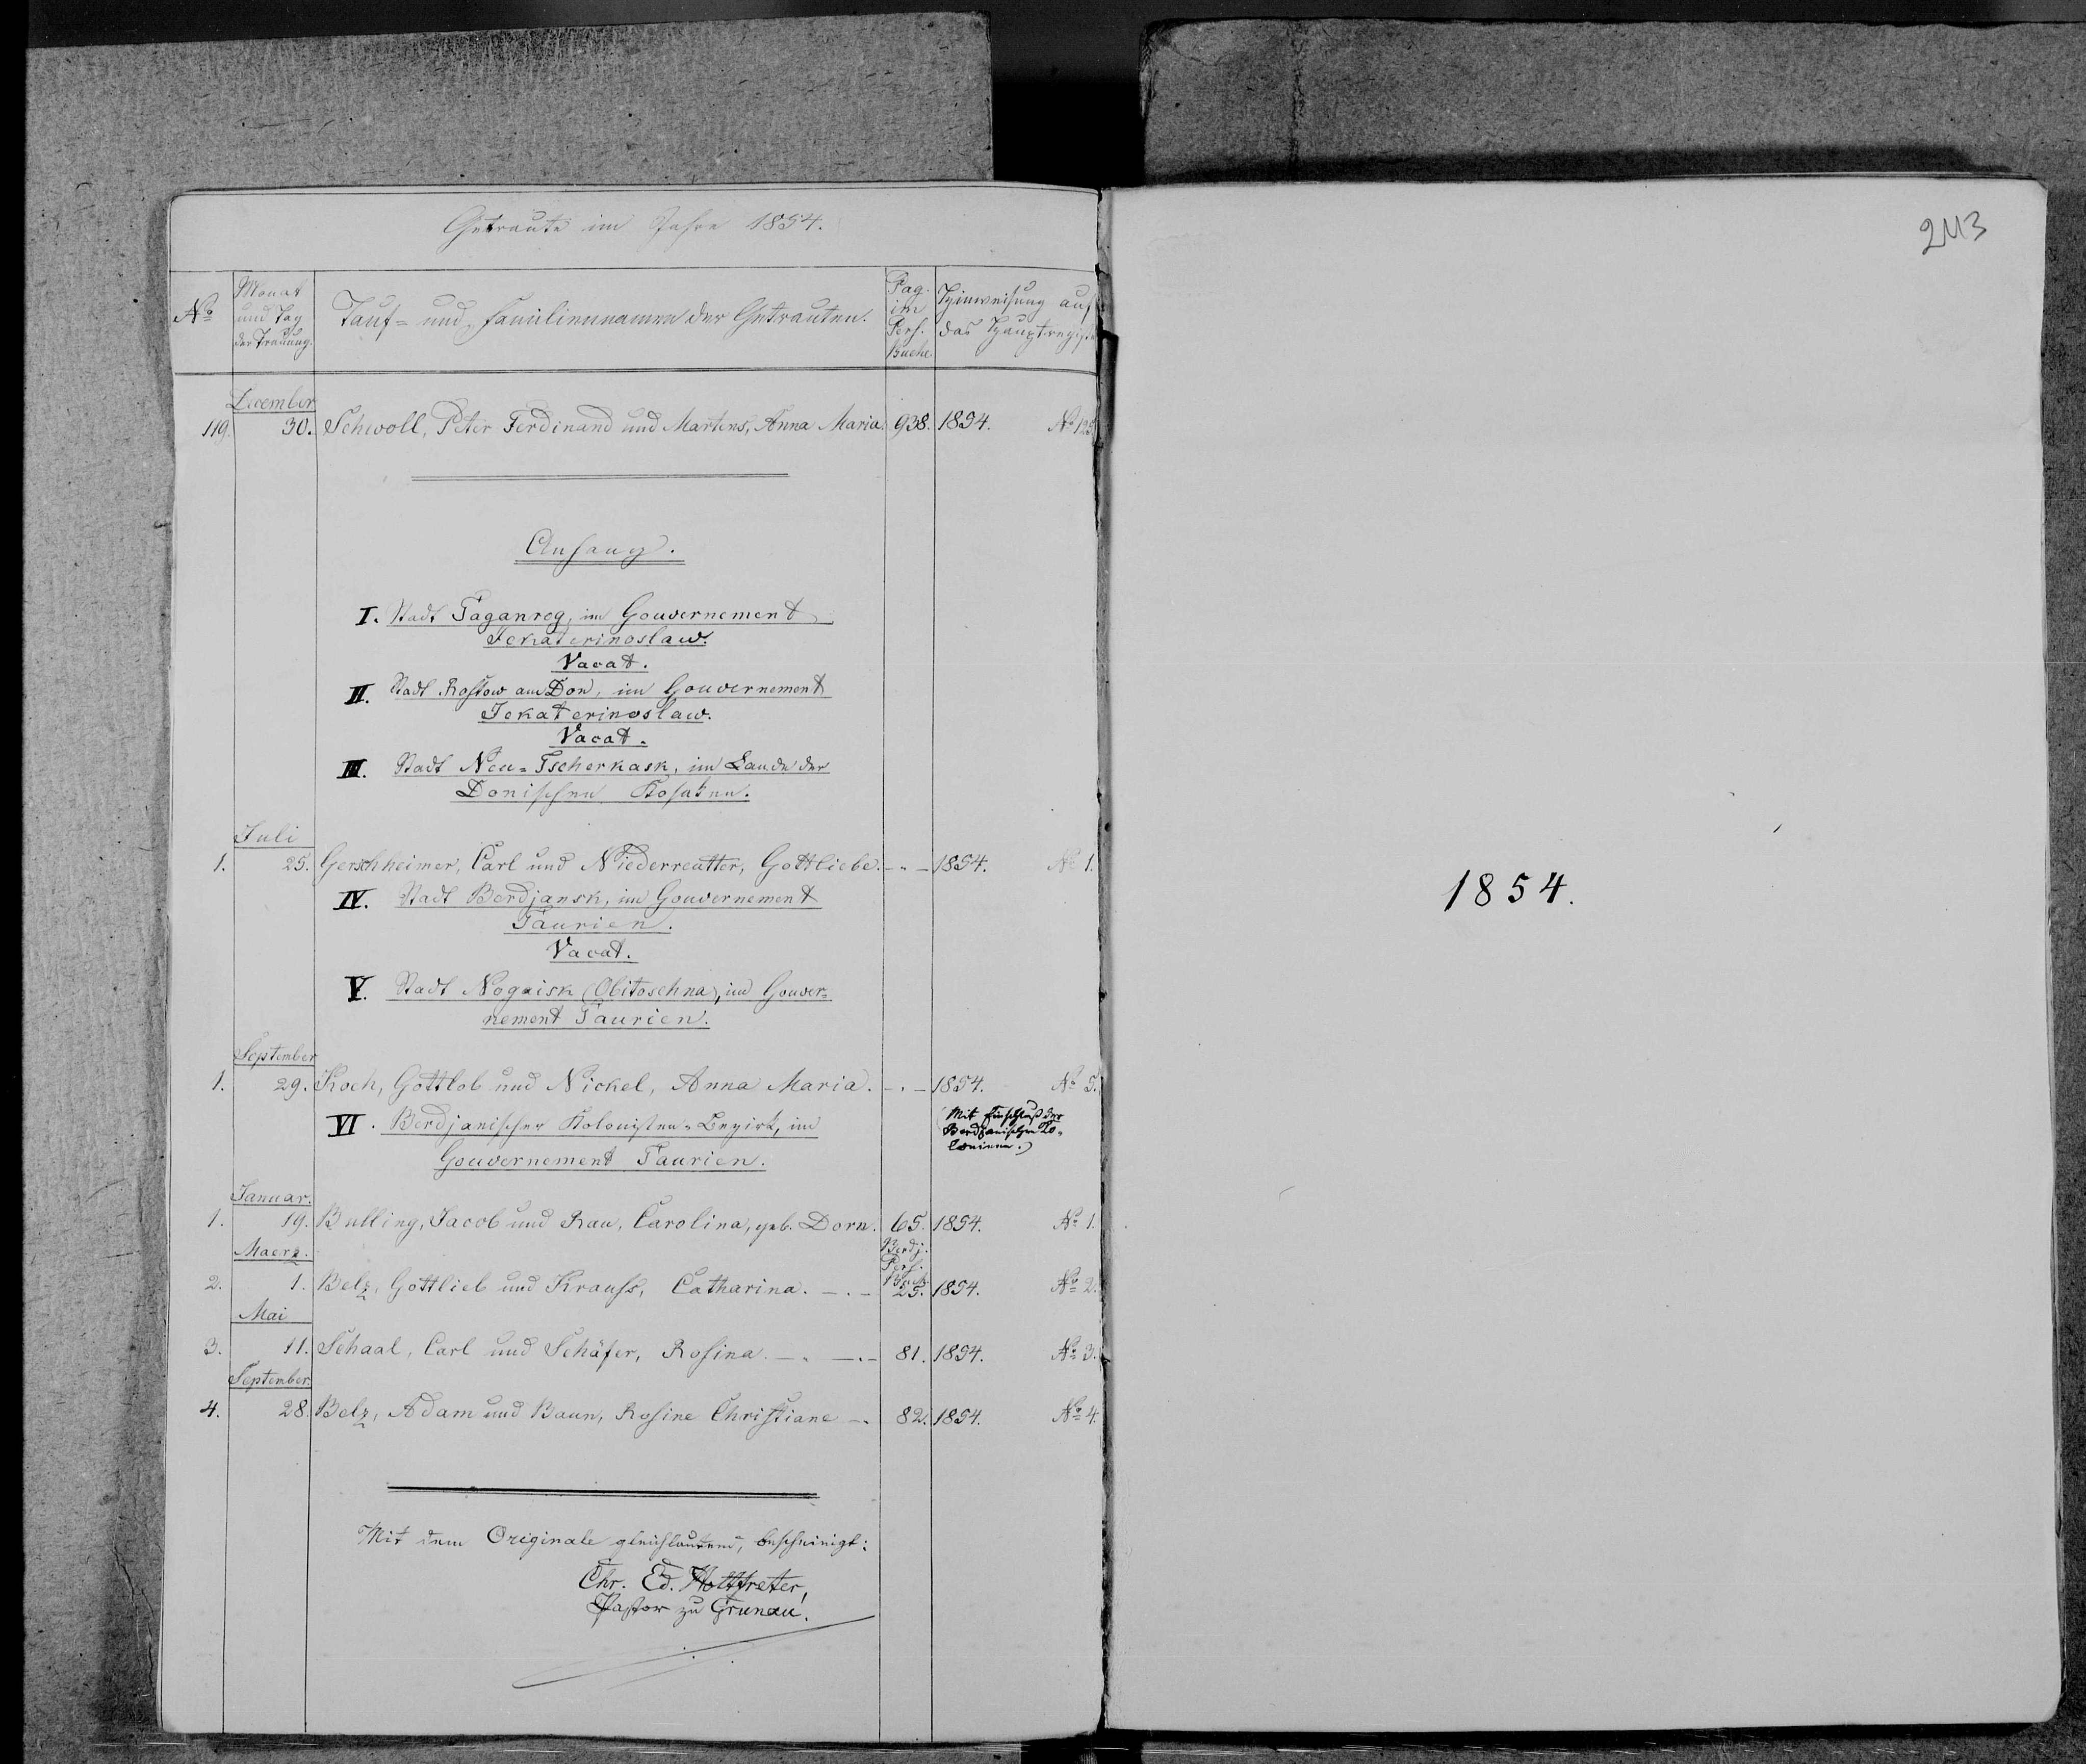 Getraute im Jahre 1854.
No
Monat
und Tag
der Trauung.
Tauf- und Familiennamen der Getrauten.
Pag.
im
Pers.
Buche.
Hinweisung auf
das Hauptregister
December
119. 30. Schwoll, Peter Ferdinand und Martens, Anna Maria. 938. 1854. No 125.
Anhang.
I. Stadt Taganrog, im Gouvernement
Jekaterinoslaw.
Vacat.
II. Stadt Rostow am Don, im Gouvernement
Jekaterinoslaw.
Vacat.
III. Stadt Neu-Tscherkask, im Lande der
Donischen Kosaken.
Juli
1. 25. Gerschheimer, Carl und Niederreutter, Gottliebe. - " - 1854. No 1.
IV. Stadt Berdjansk, im Gouvernement
Taurien.
Vacat.
V. Stadt Nogaisk (Obitoschna), im Gouver-
nement Taurien.
September
1. 29. Koch, Gottlob und Nickel, Anna Maria. - . - 1854. No 5.
(Mit Einschluß der
Berdjanischen Ko-
lonieen.)
VI. Berdjanischer Kolonisten-Bezirk, im
Gouvernement Taurien.
Januar.
1. 19. Bulling, Jacob und Rau, Carolina, geb. Dorn. 65. 1854. No 1.
Maerz.
Berdj.
Pers.
Buch
2. 1. Belz, Gottlieb und Krauss, Catharina. - . - 25. 1854. No 2.
Mai
3. 11. Schaal, Carl und Schäfer, Rosina. - . - . - 81. 1854. No 3.
September.
4. 28. Belz, Adam und Baun, Rosine Christiane - . 82. 1854. No 4.
Mit dem Originale gleichlautend, bescheinigt:
Chr. Ed. Holtfreter,
Pastor zu Grunau.
243
1854.